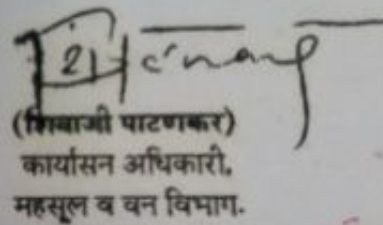 (शिवाजी पाटणकर)
कार्यासन अधिकारी.
महसूल व वन विभाग.